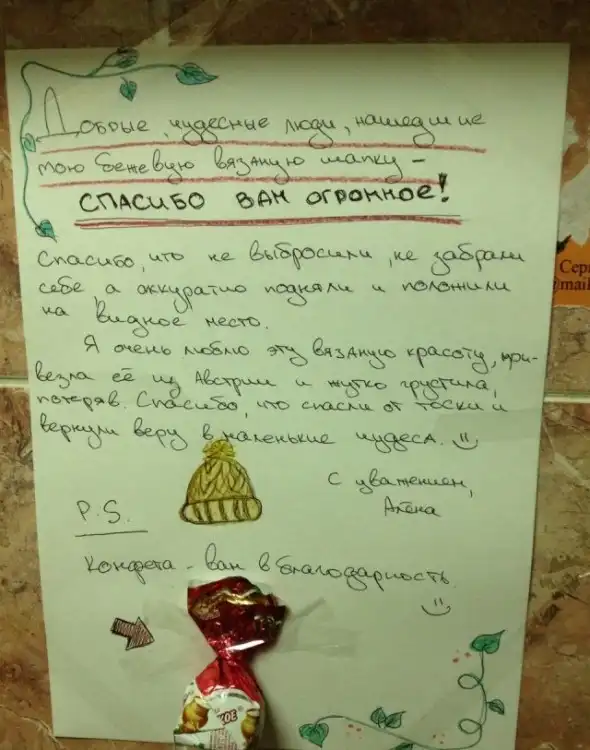 Добрые, чудесные люди, нашедшие
мою бежевую вязаную шапку –
СПАСИБО ВАМ ОГРОМНОЕ!
Спасибо, что не выбросили, не забрали
себе, а аккуратно подняли и положили
на видное место.
Я очень люблю эту вязаную красоту, при-
везла её из Австрии и жутко грустила,
потеряв. Спасибо, что спасли от тоски и
вернули веру в маленькие чудеса.
С уважением,
Алёна
P.S.
Конфета – вам в благодарность.